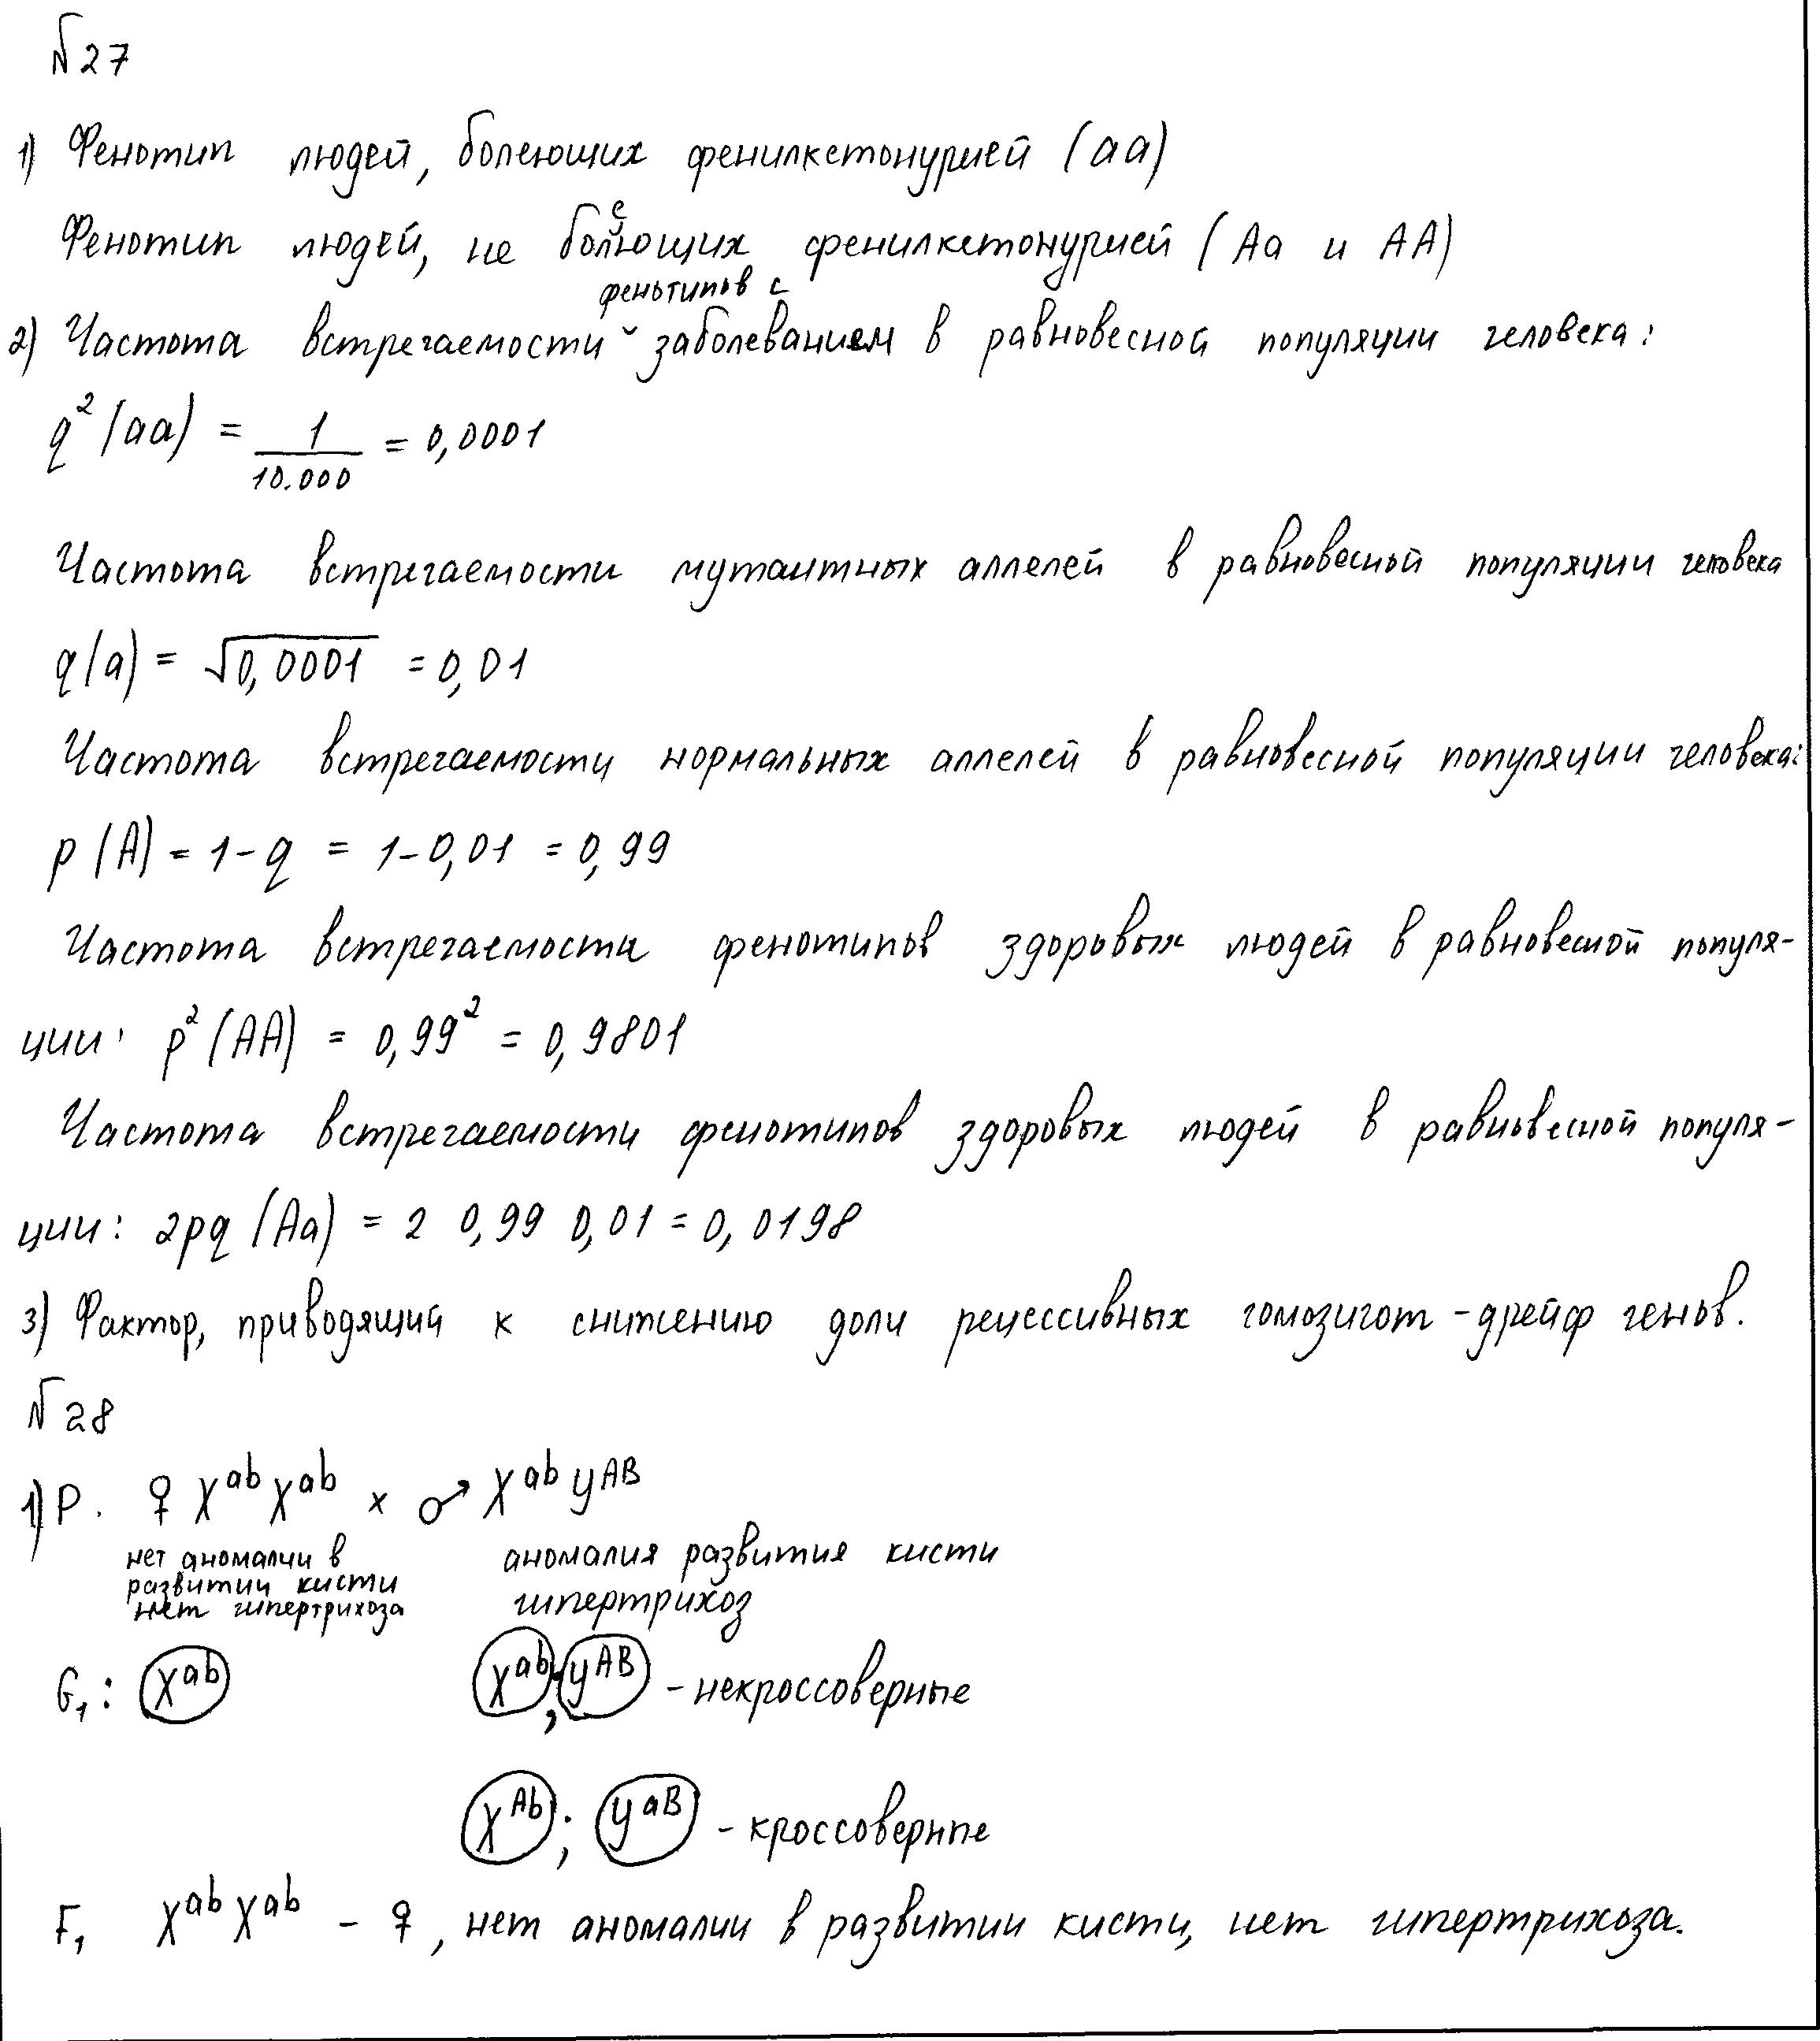 №27
1) Фенотип людей, болеющих фенилкетонурией (aa)
Фенотип людей, не болеющих фенилкетонурией (Aa и AA)
фенотипов с
2) Частота встречаемости ˇ заболеванием в равновесной популяции человека:
q² (aa) = 1/10.000 = 0,0001
Частота встречаемости мутантных аллелей в равновесной популяции человека
q(a) = √0,0001 = 0,01
Частота встречаемости нормальных аллелей в равновесной популяции человека:
p (A) = 1-q = 1-0,01 = 0,99
Частота встречаемости фенотипов здоровых людей в равновесной популя-
ции: p² (AA) = 0,99² = 0,9801
Частота встречаемости фенотипов здоровых людей в равновесной популя-
ции: 2pq (Aa) = 2 0,99 0,01 = 0,0198
3) Фактор, приводящий к снижению доли рецессивных гомозигот - дрейф генов.
№28
1) P. ♀ X^ab X^ab × ♂ X^ab y^AB
нет аномалии в аномалия развития кисти
развитии кисти гипертрихоз
нет гипертрихоза
G₁: X^ab X^ab; y^AB - некроссоверные
X^Ab; y^aB - кроссоверные
F₁ X^ab X^ab - ♀, нет аномалии в развитии кисти, нет гипертрихоза.